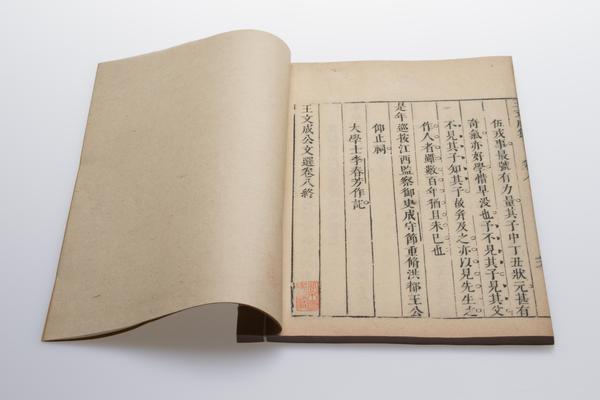 伍戎事最號有力量其子申丁丑狀元甚有
奇氣亦好學惜早没也予不見其子見其文
不見其子知其子故并及之亦以見先生之
作人者歴數百年猶且未已也
是年巡按江西監察御史成守節重脩洪都王公
仰止祠
大學士李春芳作記
王文成公文選卷八終